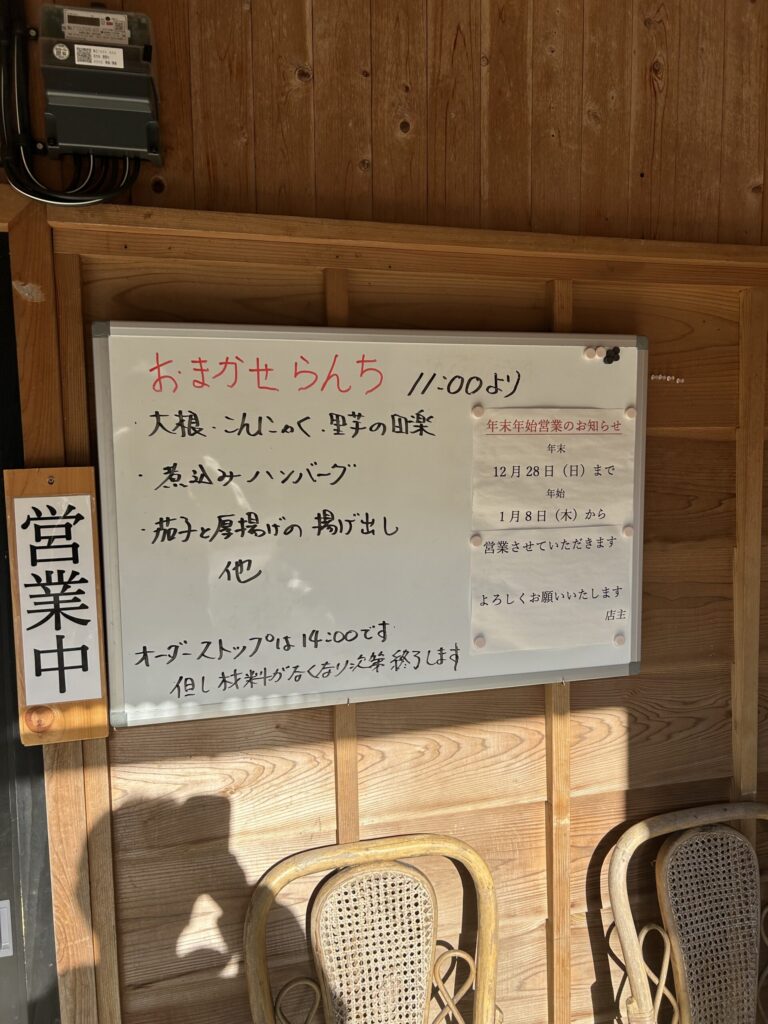 おまかせらんち 11:00より
・大根・こんにゃく・里芋の田楽
・煮込みハンバーグ
・茄子と厚揚げの揚げ出し
他
オーダーストップは14:00です
但し材料がなくなり次第終了します
年末年始営業のお知らせ
年末
12月28日（日）まで
年始
1月8日（木）から
営業させていただきます
よろしくお願いいたします
店主
営業中